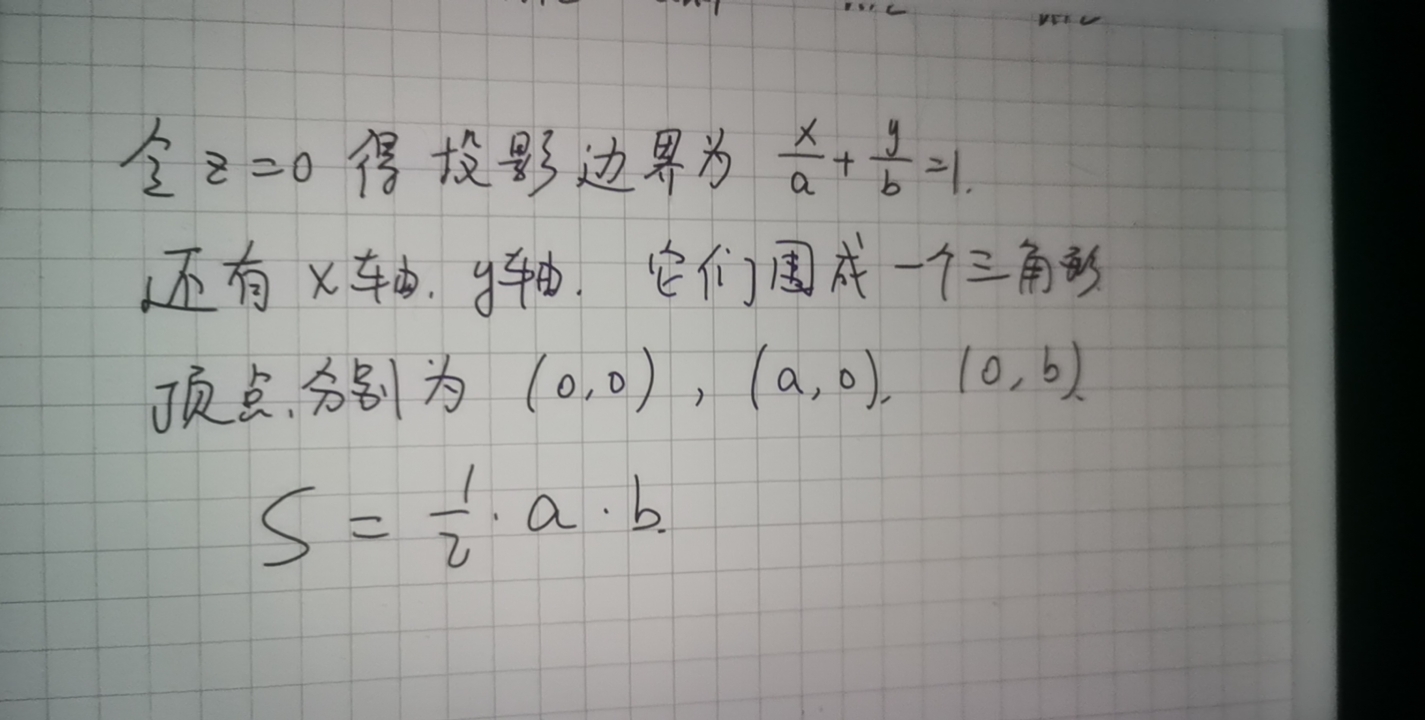 令 z=0 得投影边界为 x/a + y/b =1.
还有 x轴. y轴. 它们围成一个三角形
顶点.分别为 (0,0), (a,0). (0,b).
S = 1/2 · a · b.